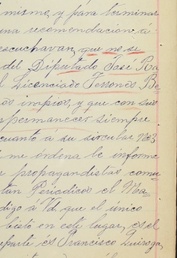 mismo, y para terminar
una recomendacion á
escucharan, que no se
del Diputado José Ba
l Licenciado Terrones B
os impresos, y que con sus
permanecer siempre
cuanto á su circular No. 3
me ordena le informe
propagandistas comu
tan Periodicos el Ma
digo á Vd que el único
este en este lugar, es el
parte es Francisco Quiroga,